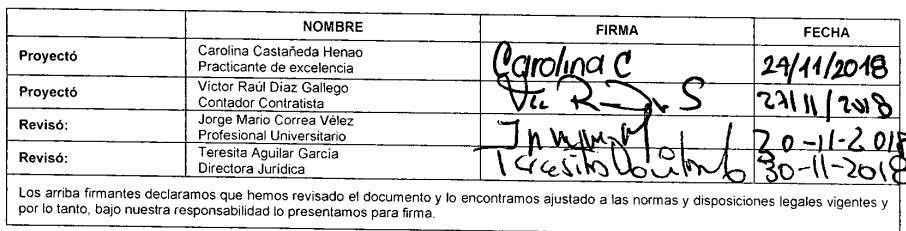 NOMBRE FIRMA FECHA
Proyectó Carolina Castañeda Henao
Practicante de excelencia Carolina C 29/11/2018
Proyectó Víctor Raúl Díaz Gallego
Contador Contratista 27/11/2018
Revisó: Jorge Mario Correa Vélez
Profesional Universitario 20-11-2018
Revisó: Teresita Aguilar García
Directora Jurídica 30-11-2018
Los arriba firmantes declaramos que hemos revisado el documento y lo encontramos ajustado a las normas y disposiciones legales vigentes y
por lo tanto, bajo nuestra responsabilidad lo presentamos para firma.